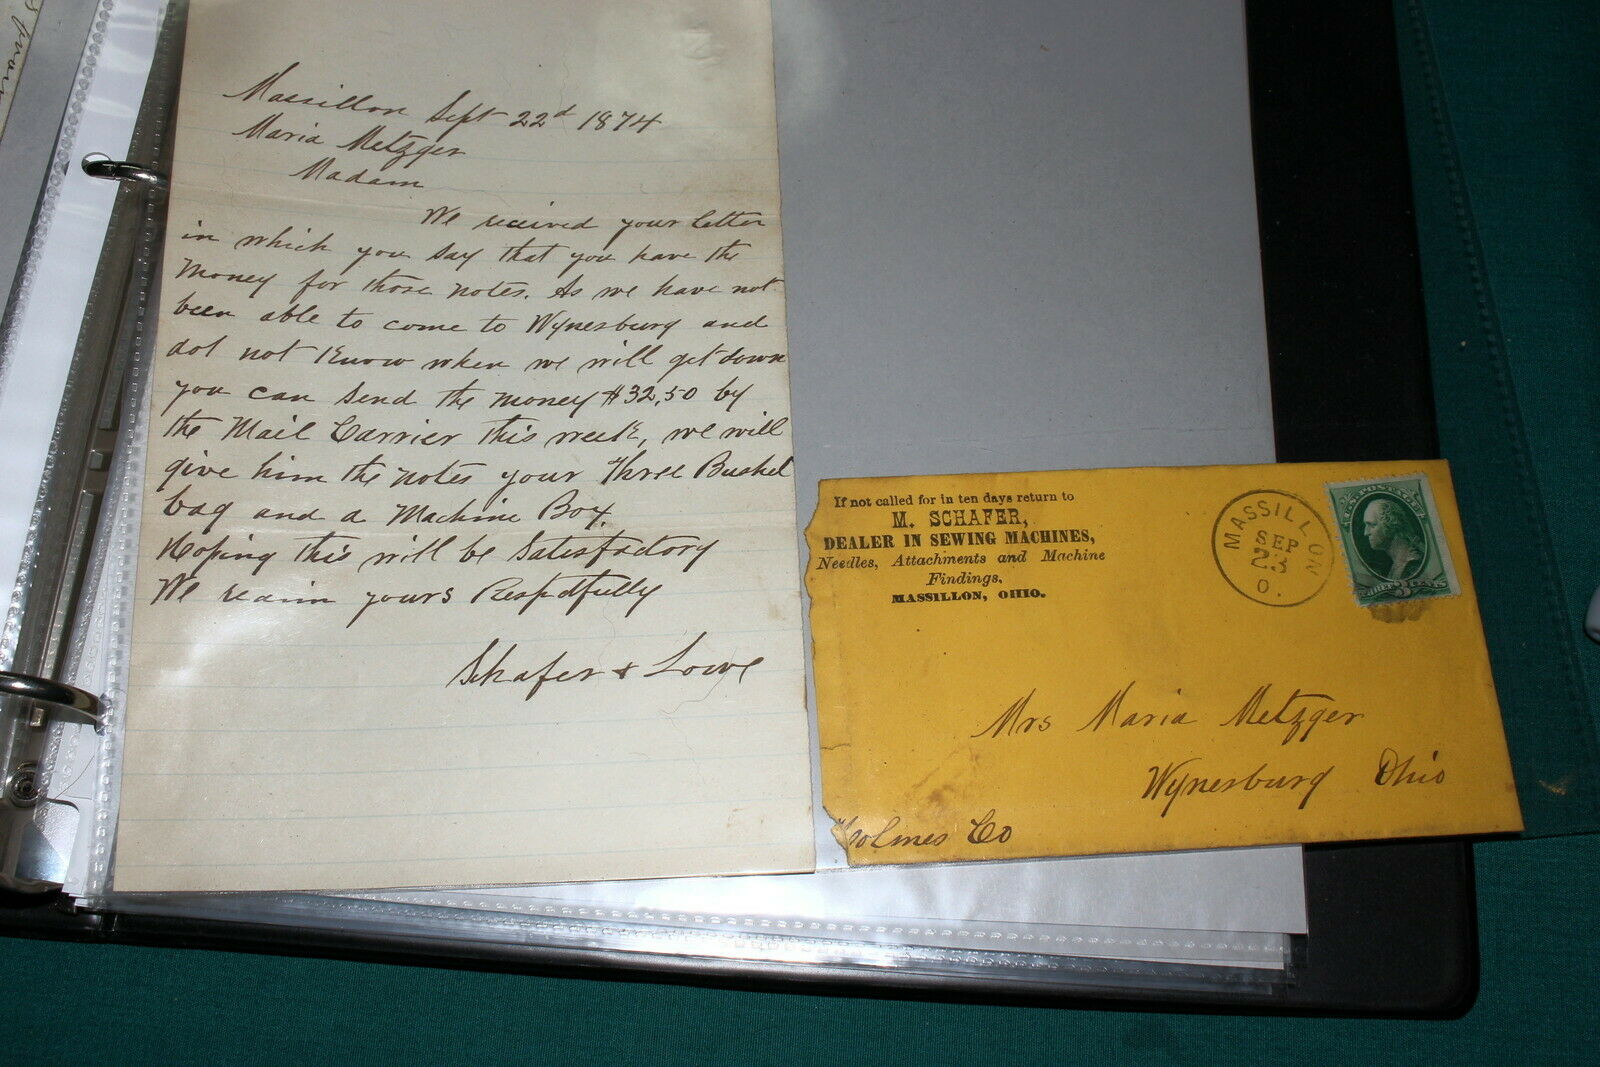 Massillon Sept 22d 1874
Maria Metzger
Madam
We recieved your letter
in which you say that you have the
Money for those notes. As we have not
been able to come to Wynesburg and
dot not Know when we will get down
you can send the money $32,50 by
the Mail Carrier this week, we will
give him the notes your three Bushel
bag and a Machine Box.
Hoping this will be Satisfactory
We reain yours Respectfully
Schafer & Lowe
If not called for in ten days return to
M. SCHAFER,
DEALER IN SEWING MACHINES,
Needles, Attachments and Machine
Findings,
MASSILLON, OHIO.
MASSILLON
SEP
23
O.
U.S. POSTAGE
3 CENTS
Mrs Maria Metzger
Wynesburg Ohio
Holmes Co